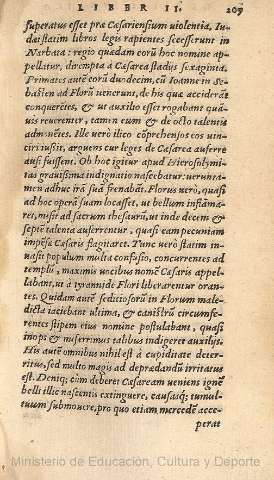 LIBER II. 209
superatus esset præ Cæsariensium uiolentia, Iu-
dæi statim libros legis rapientes secesserunt in
Narbata: regio quædam eorũ hoc nomine ap-
pellatur, dirempta a Cæsarea stadijs sexaginta.
Primates autẽ corũ duodecim, cũ Ioanne in Se-
basten ad Florũ uenerunt, de his quæ acciderãt
conquerẽtes, & ut auxilio esset rogabant quãm-
uis reuerenter, tamen eum & de octo talentis
admonẽtes. Ille uerò ilico cõprehensos eos uin-
ciri iussit, arguens cur leges de Cæsarea auferre
ausi fuissent. Ob hoc igitur apud Hierosolymi-
tas grauissima indignatio nascebatur: uerunta-
men adhuc irã suã frenabãt. Florus uerò, quasi
ad hoc operã suam locasset, ut bellum inflãma-
ret, misit ad sacrum thesaurũ, ut inde decem &
septẽ talenta auferrentur, quasi eam pecuniam
impẽsa Cæsaris flagitaret. Tunc uerò statim in-
uasit populum multa confusio, concurrentes ad
templũ, maximis uocibus nomẽ Cæsaris appel-
labant, ut a tyrannide Flori liberarentur oran-
tes. Quidam autẽ seditiosorũ in Florum male-
dicta iaciebant ultima, & canistrũ circumfe-
rentes stipem eius nomine postulabant, quasi
inops & miserrimus talibus indigeret auxilijs.
His autẽ omnibus nihil est à cupiditate deter-
ritus, sed multo magis ad deprædandũ irritatus
est. Deniq; cùm deberet Cæsaream ueniens ignẽ
belli illic nascentis extinguere, causasq; tumul-
tuum submouere, pro quo etiam mercedẽ acce-
perat
Ministerio de Educación, Cultura y Deporte